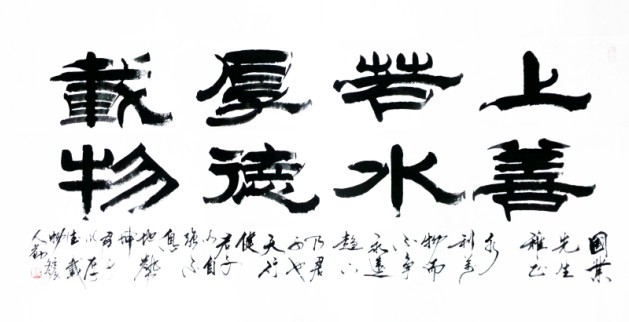 上善
若水
厚德
載物
国業
先生
雅正
水
利万
物而
不争
永遠
趋下
乃君
天行
健
君子
以自
强不
息
地势
坤
君子
以厚
德載
物